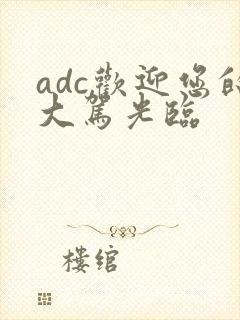 adc歡迎您的
大駕光臨
樓綰